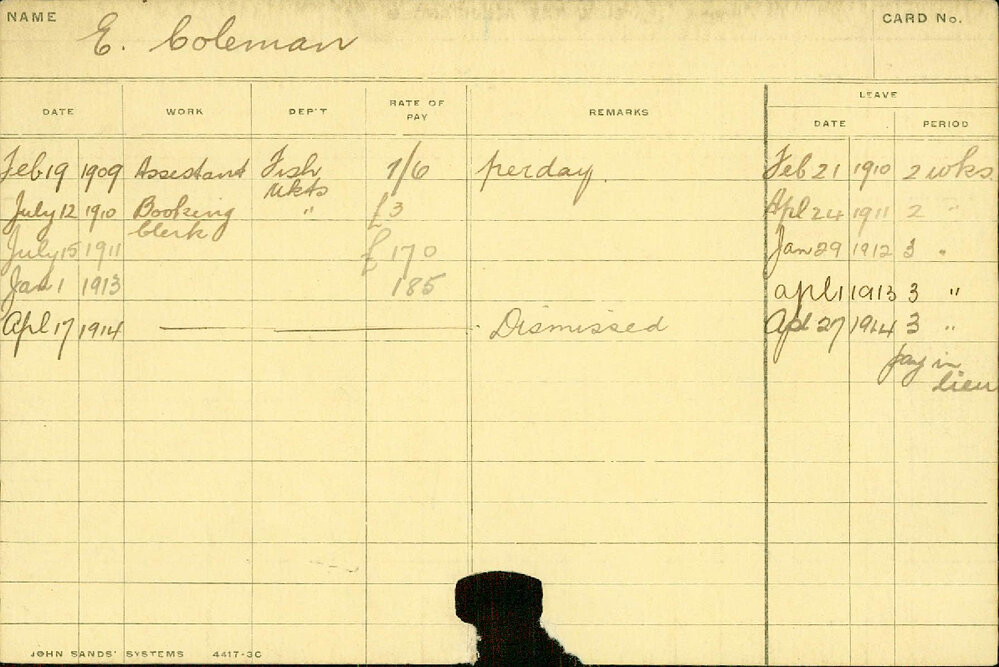 NAME E. Coleman CARD No.
LEAVE
DATE WORK DEP'T RATE OF PAY REMARKS DATE PERIOD
Feb 19 1909 Assistant Fish Mkts 7/6 per day. Feb 21 1910 2 wks.
July 12 1910 Booking Clerk " £3 Apl 24 1911 2 "
July 15 1911 £170 Jan 29 1912 3 "
Jan 1 1913 185 apl 1 1913 3 "
Apl 17 1914 Dismissed Apl 27 1914 3 "
pay in lieu
JOHN SANDS' SYSTEMS 4417-3C